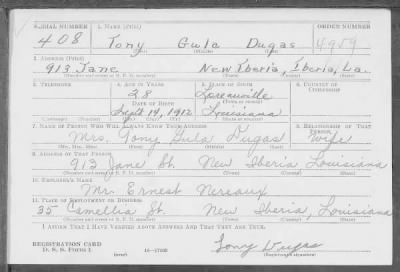 SERIAL NUMBER 1. NAME (Print) ORDER NUMBER
408 Tony Gula Dugas 4909
(First) (Middle) (Last)
2. ADDRESS (Print)
913 Jane New Iberia, Iberia, La.
(Number and street or R. F. D. number) (Town) (County) (State)
3. TELEPHONE 4. AGE IN YEARS 5. PLACE OF BIRTH 6. COUNTRY OF CITIZENSHIP
28 Loreauville
DATE OF BIRTH (Town or county)
Sept 14, 1912 Louisiana
(Exchange) (No.) (Mo.) (Day) (Yr.) (State or country)
7. NAME OF PERSON WHO WILL ALWAYS KNOW YOUR ADDRESS 8. RELATIONSHIP OF THAT PERSON
Mrs. Tony Gula Dugas Wife
(Mr., Mrs., Miss) (First) (Middle) (Last)
9. ADDRESS OF THAT PERSON
913 Jane St. New Iberia Louisiana
(Number and street or R. F. D. number) (Town) (County) (State)
10. EMPLOYER'S NAME
Mr. Ernest Nereaux
11. PLACE OF EMPLOYMENT OR BUSINESS
35 Camellia St. New Iberia, Louisiana
(Number and street or R. F. D. number) (Town) (County) (State)
I AFFIRM THAT I HAVE VERIFIED ABOVE ANSWERS AND THAT THEY ARE TRUE.
REGISTRATION CARD
D. S. S. FORM 1 (over) Tony Dugas
(Registrant's signature)